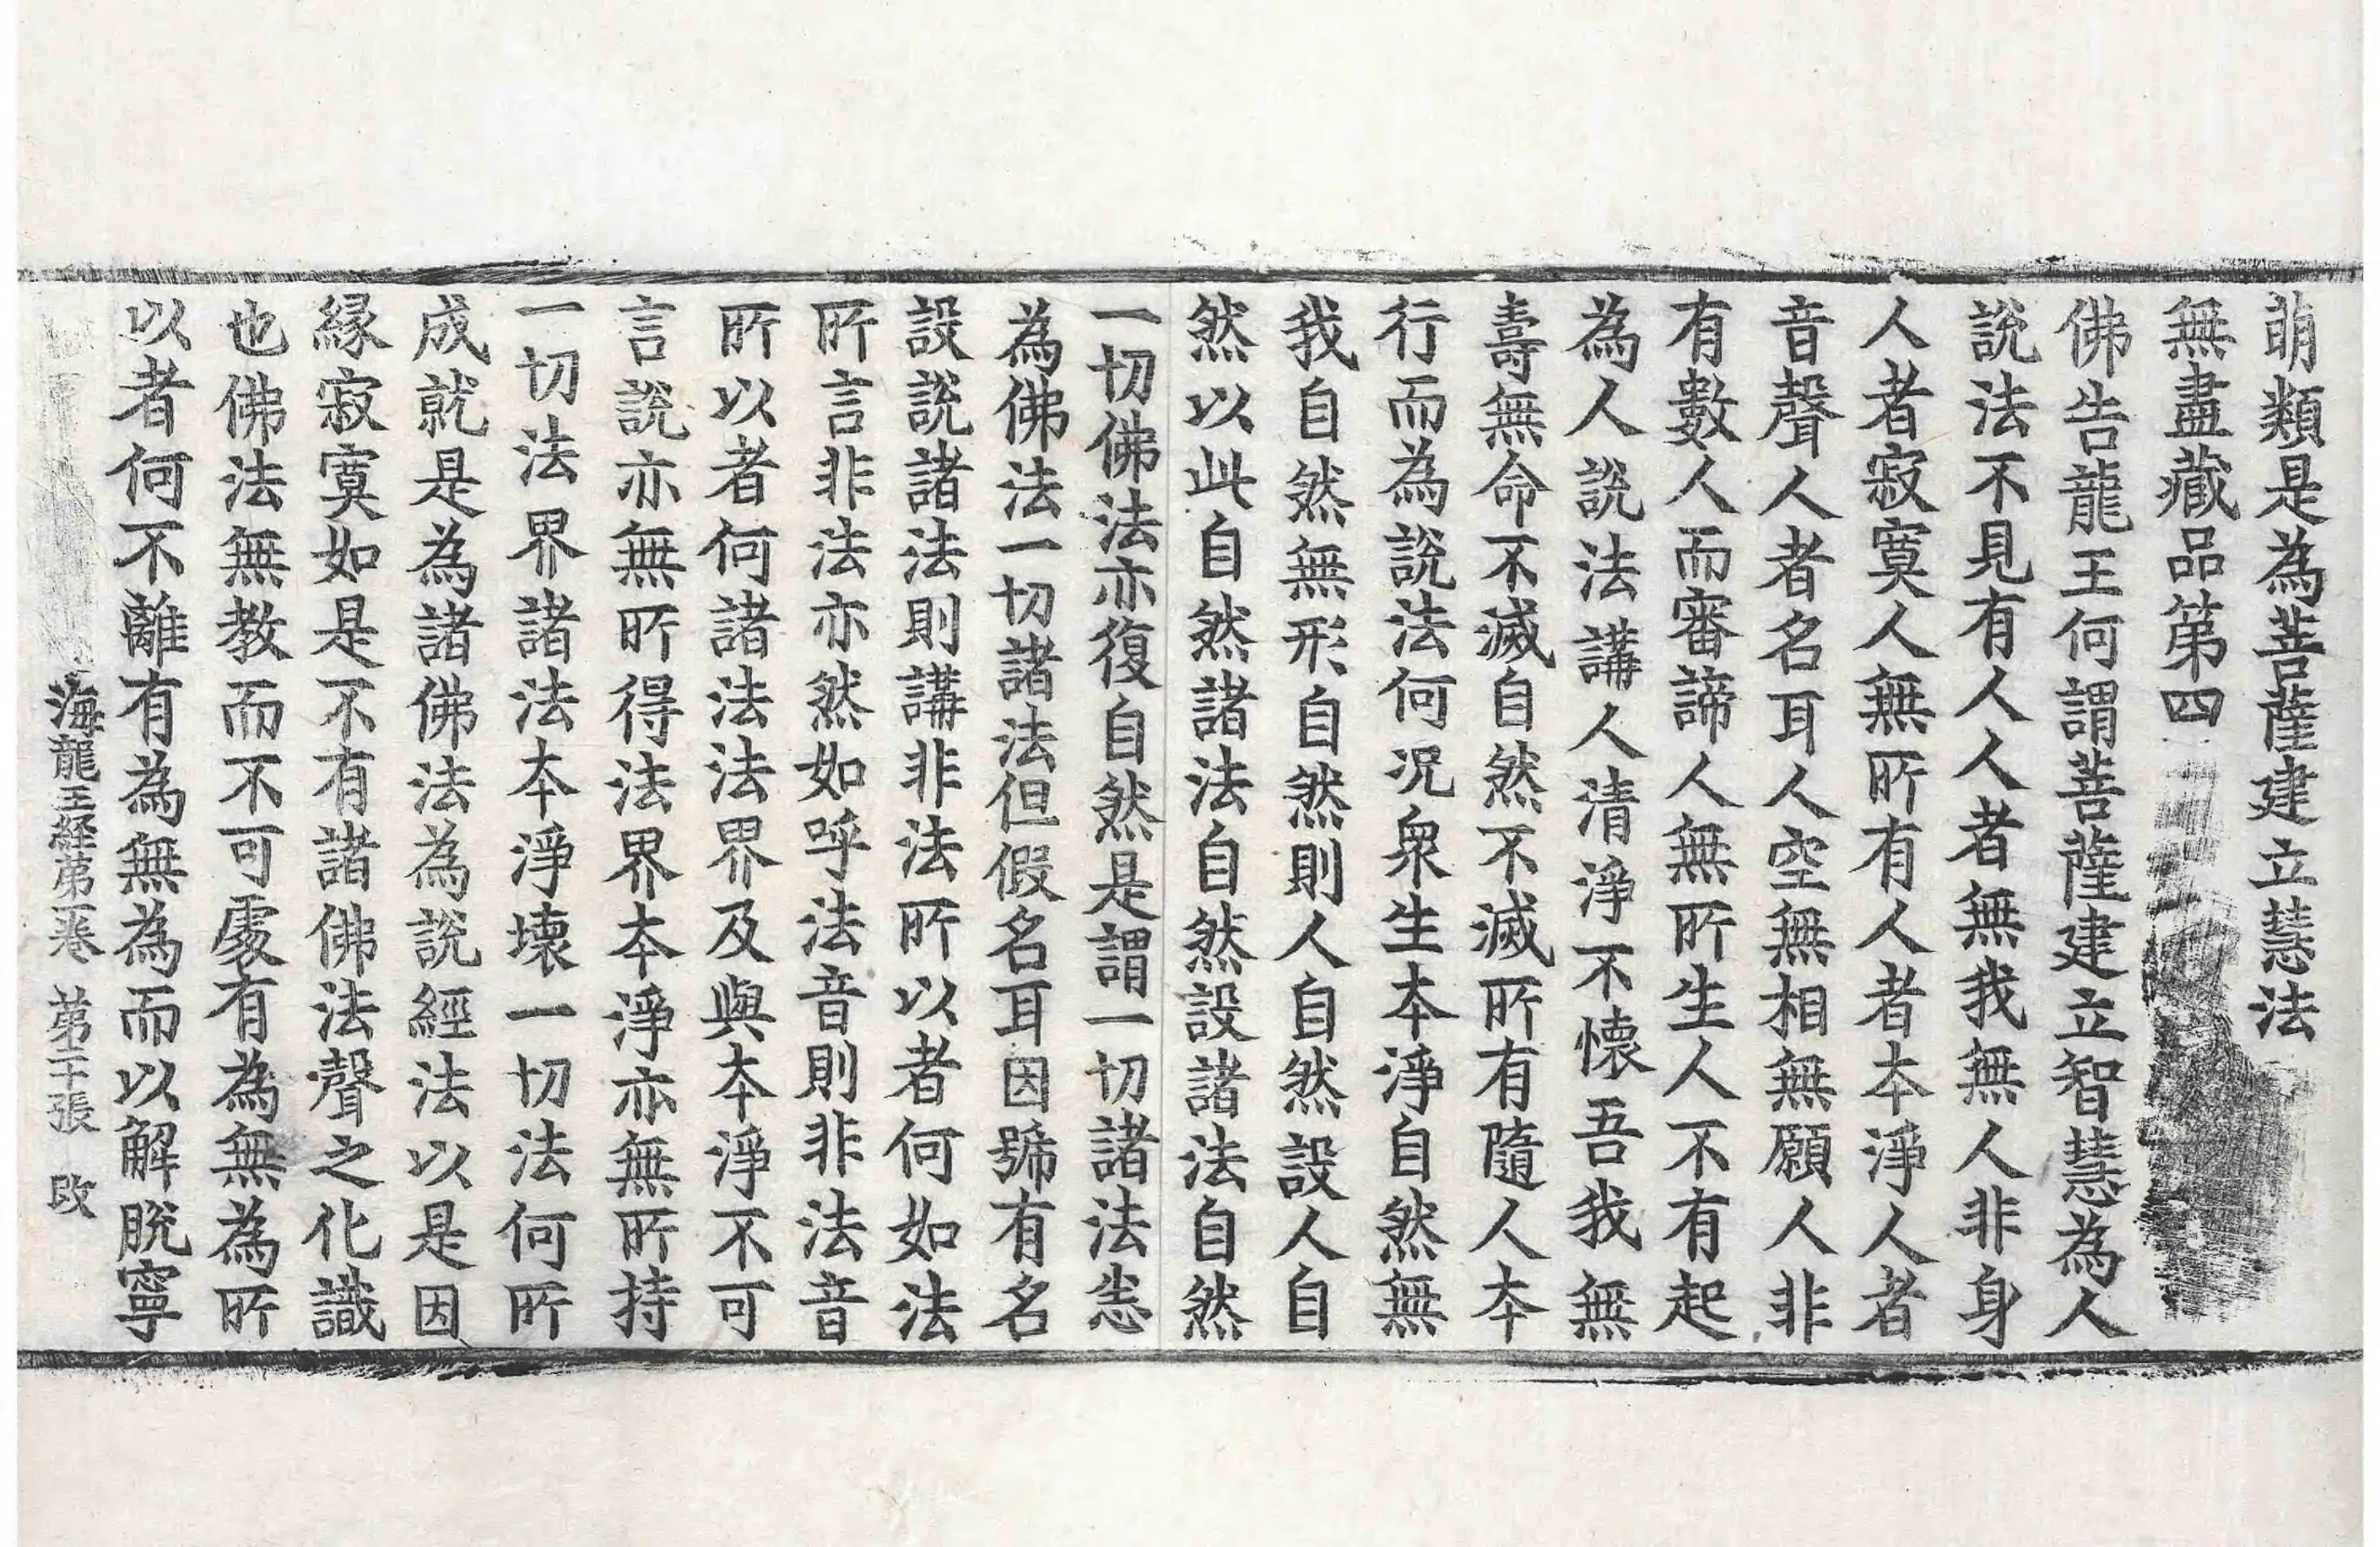 萌類是為菩薩建立慧法
無盡藏品第四
佛告龍王何謂菩薩建立智慧為人
說法不見有人人者無我無人非身
人者寂寞人無所有人者本淨人者
音聲人者名耳人空無相無願人非
有數人而審諦人無所生人不有起
為人說法講人清淨不懷吾我無
壽無命不滅自然不滅所有隨人本
行而為說法何況衆生本淨自然無
我自然無形自然則人自然設人自
然以此自然諸法自然設諸法自然
一切佛法亦復自然是謂一切諸法恙
為佛法一切諸法但假名耳因號有名
設說諸法則講非法所以者何如法
所言非法亦然如呼法音則非法音
所以者何諸法法界及與本淨不可
言說亦無所得法界本淨亦無所持
一切法界諸法本淨壞一切法何所
成就是為諸佛法為說經法以是因
緣寂寞如是不有諸佛法聲之化識
也佛法無教而不可處有為無為所
以者何不離有為無為而以解脫寧
海龍王経第一卷 第二十張 改